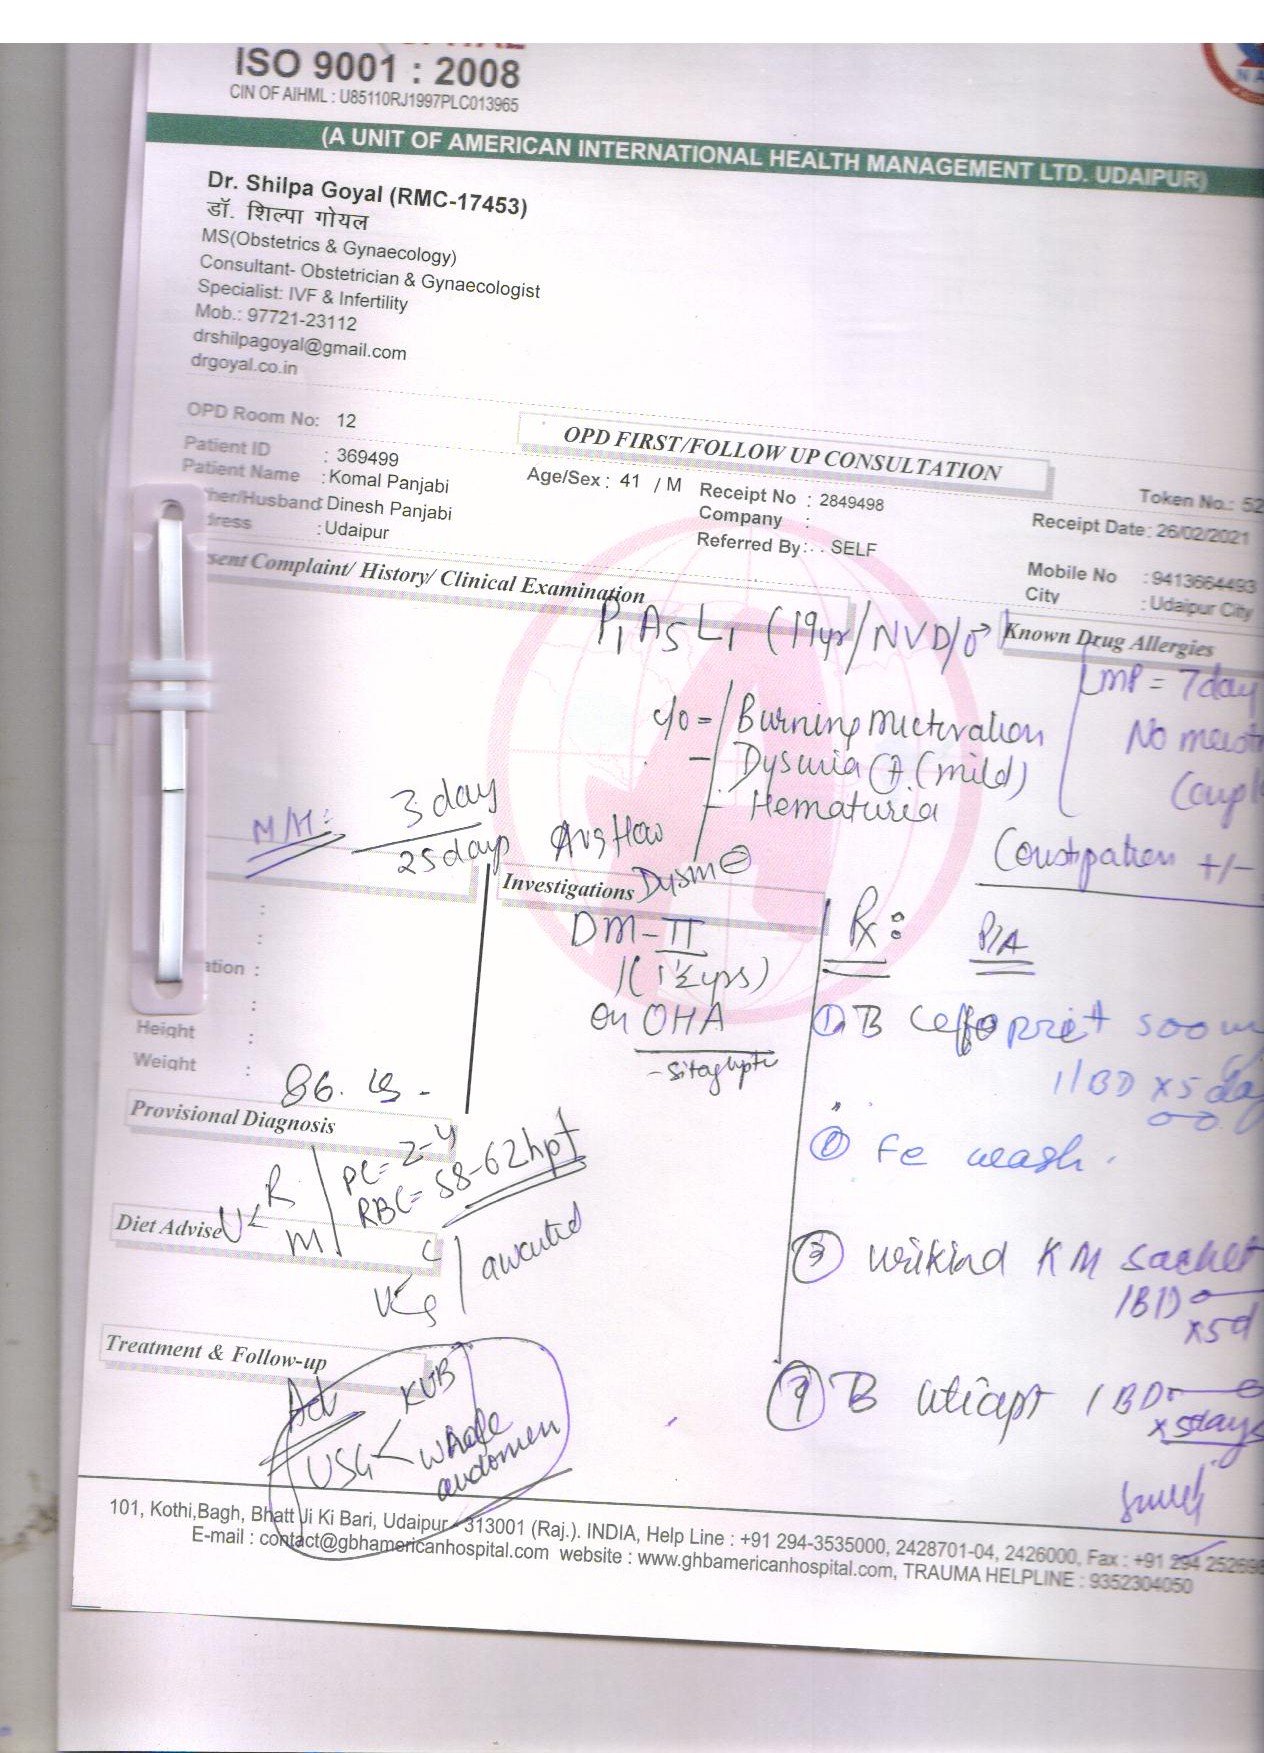 ISO 9001 : 2008
CIN OF AIHML : U85110RJ1997PLC013965
(A UNIT OF AMERICAN INTERNATIONAL HEALTH MANAGEMENT LTD. UDAIPUR)
Dr. Shilpa Goyal (RMC-17453)
डॉ. शिल्पा गोयल
MS(Obstetrics & Gynaecology)
Consultant- Obstetrician & Gynaecologist
Specialist: IVF & Infertility
Mob.: 97721-23112
drshilpagoyal@gmail.com
drgoyal.co.in
OPD Room No: 12
OPD FIRST/FOLLOW UP CONSULTATION
Token No.: 52
Patient ID : 369499
Age/Sex : 41 / M
Receipt No : 2849498
Receipt Date : 26/02/2021
Patient Name : Komal Panjabi
Company :
Mobile No : 9413664493
her/Husband : Dinesh Panjabi
Referred By: . . SELF
City : Udaipur City
dress : Udaipur
sent Complaint/ History/ Clinical Examination
P1 A5 L1 (19yr/NVD/♂
Known Drug Allergies
LMP = 7day
c/o = Burning micturation
No
- Dysuria (+) (mild)
- Hematuria
M/H: 3 day
25 days Avg flow
Dysm ⊖
Constipation +/-
Investigations
Rx: P/A
DM-II
(1½yrs)
on OHA
- Sitaglipti
ation :
Height :
Weight : 86.
① 500
1 BD x5 day
② Fe wash.
Provisional Diagnosis
U < R PC= 2-4
M RBC= 58-62 hpf
Diet Advise
U < C awaited
S
③ Urikind KM sachet
1BD
x5d
Treatment & Follow-up
Adv
USG < KUB
whole
abdomen
④ 1 BD
x5days
101, Kothi,Bagh, Bhatt Ji Ki Bari, Udaipur - 313001 (Raj.). INDIA, Help Line : +91 294-3535000, 2428701-04, 2426000, Fax : +91 294 252698
E-mail : contact@gbhamericanhospital.com website : www.ghbamericanhospital.com, TRAUMA HELPLINE : 9352304050